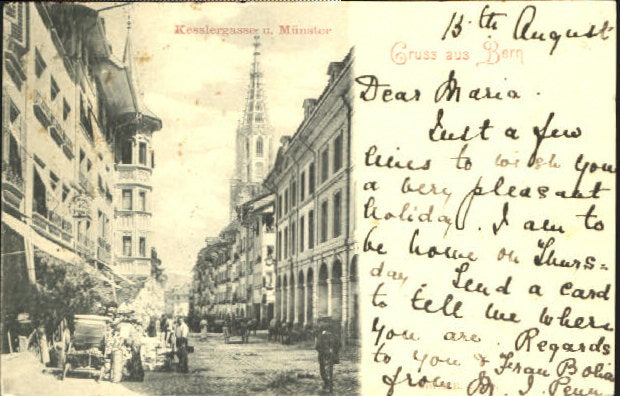 Kesslergasse u. Münster
Gruss aus Bern
15th August
Dear Maria.
Just a few
lines to wish you
a very pleasant
holiday. I am to
be home on "Thurs-
day. Send a card
to tell me where
you are. Regards
to you & Frau
from M. J. Penn